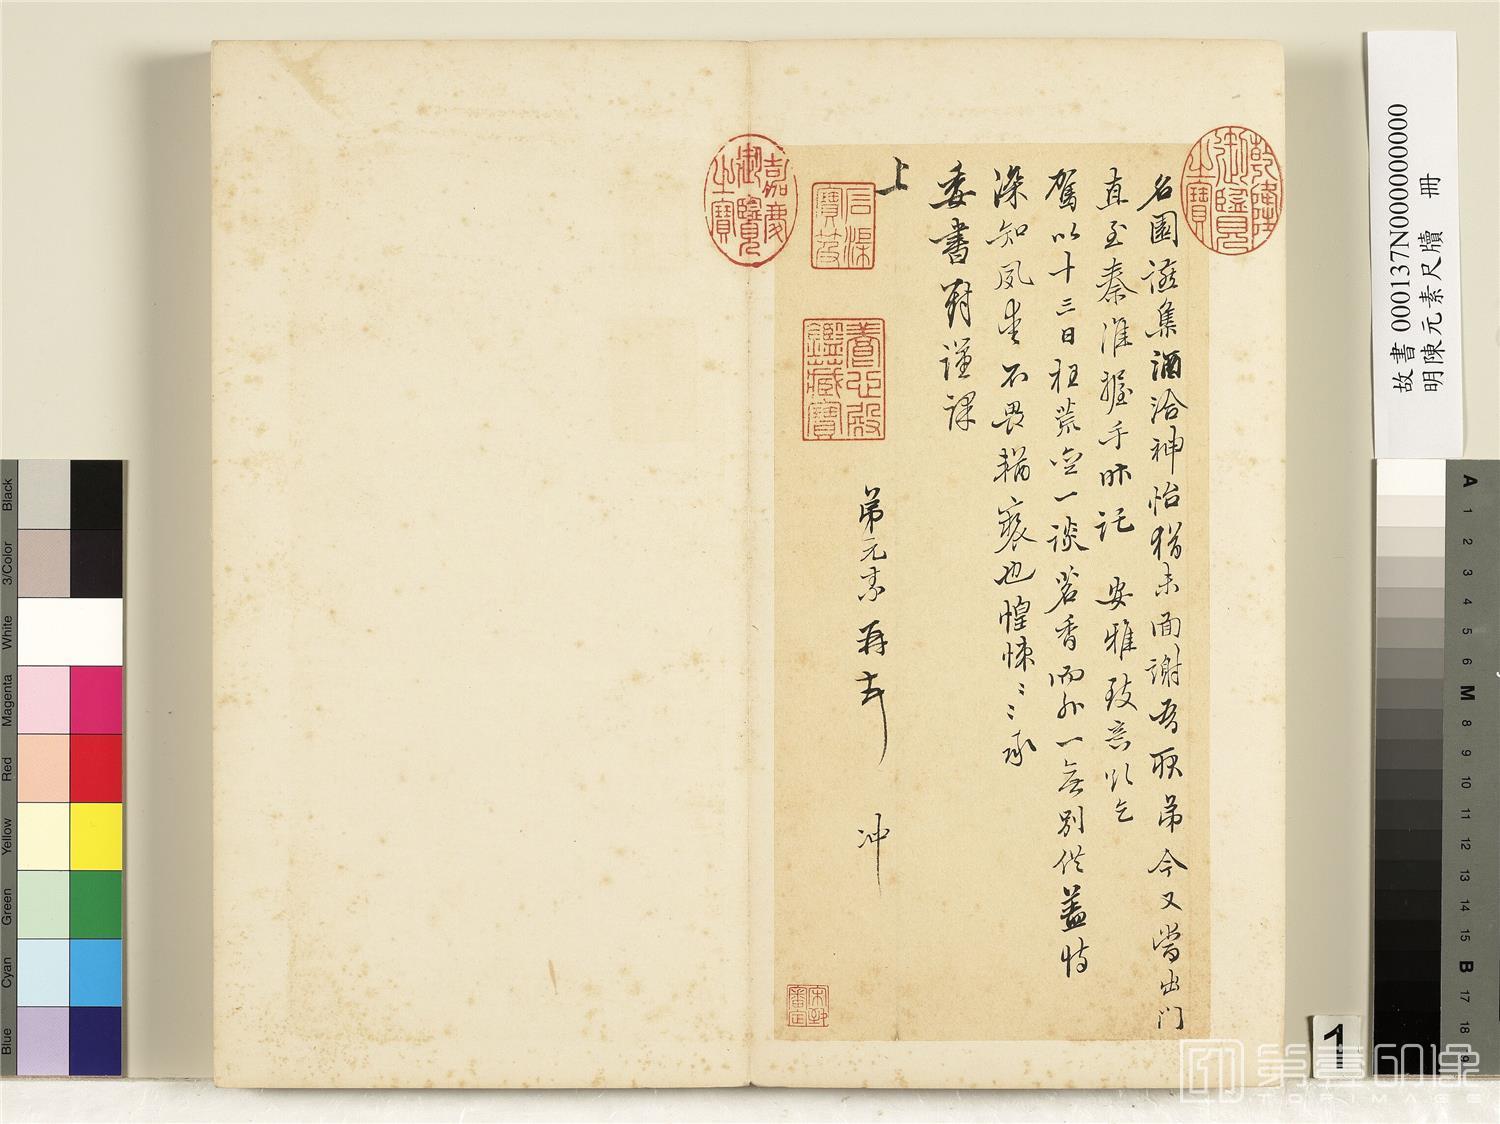 名園讌集酒洽神怡猶未面謝吾耿弟今又當出門
直至秦淮握手昨託　安雅致意欲乞
駕以十三日枉荒齋一談茗香而外一無別供蓋恃
深知夙愛不畏褻也惶悚〻〻承
委書對謹課
上
弟元素再
冲
乾隆御覽之寶
嘉慶御覽之寶
石渠寶笈
養心殿鑑藏寶
故書 000137N000000000
明陳元素尺牘　冊
Black
3/Color
White
Magenta
Red
Yellow
Green
Cyan
Blue
A
1
2
3
4
5
6
M
8
9
10
11
12
13
14
15
B
17
18
19
1
第壹印像
TOPIMAGE